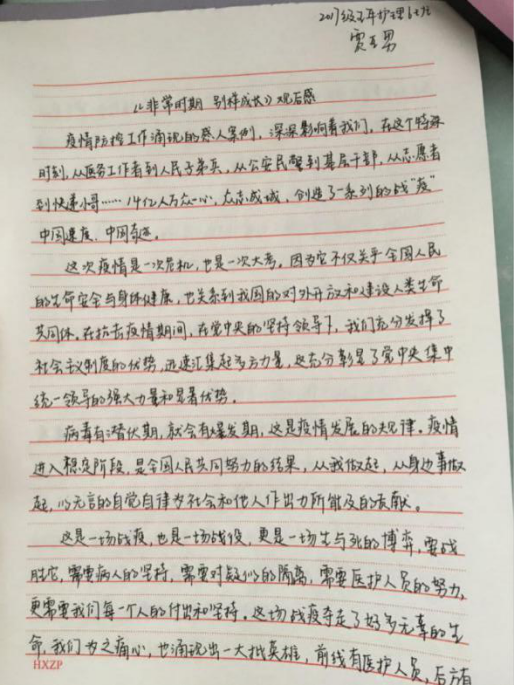 2017级五年护理6班
贾王男
《非常时期 别样成长》观后感
疫情防控工作涌现的感人案例,深深影响着我们,在这个特殊
时刻,从医务工作者到人民子弟兵,从公安民警到基层干部,从志愿者
到快递小哥……14亿人万众一心,众志成城,创造了一系列的战“疫”
中国速度、中国奇迹。
这次疫情是一次危机,也是一次大考,因为它不仅关乎全国人民
的生命安全与身体健康,也关系到我国的对外开放和建设人类生命
共同体。在抗击疫情期间,在党中央的坚持领导下,我们充分发挥了
社会主义制度的优势,迅速汇集起多方力量,这充分彰显了党中央集中
统一领导的强大力量和显著优势。
病毒有潜伏期,就会有爆发期,这是疫情发展的规律。疫情
进入稳定阶段,是全国人民共同努力的结果,从我做起,从身边事做
起,以无言的自觉自律为社会和他人作出力所能及的贡献。
这是一场战疫,也是一场战役,更是一场生与死的博弈,要战
胜它,需要病人的坚持,需要对疑似的隔离,需要医护人员的努力,
更需要我们每一个人的付出和坚持。这场战疫夺走了好多无辜的生
命,我们为之痛心,也涌现出一大批英雄,前线有医护人员,后方有
HXZP